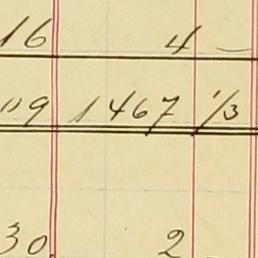 16 4 —
09 1467 1/3
30 2